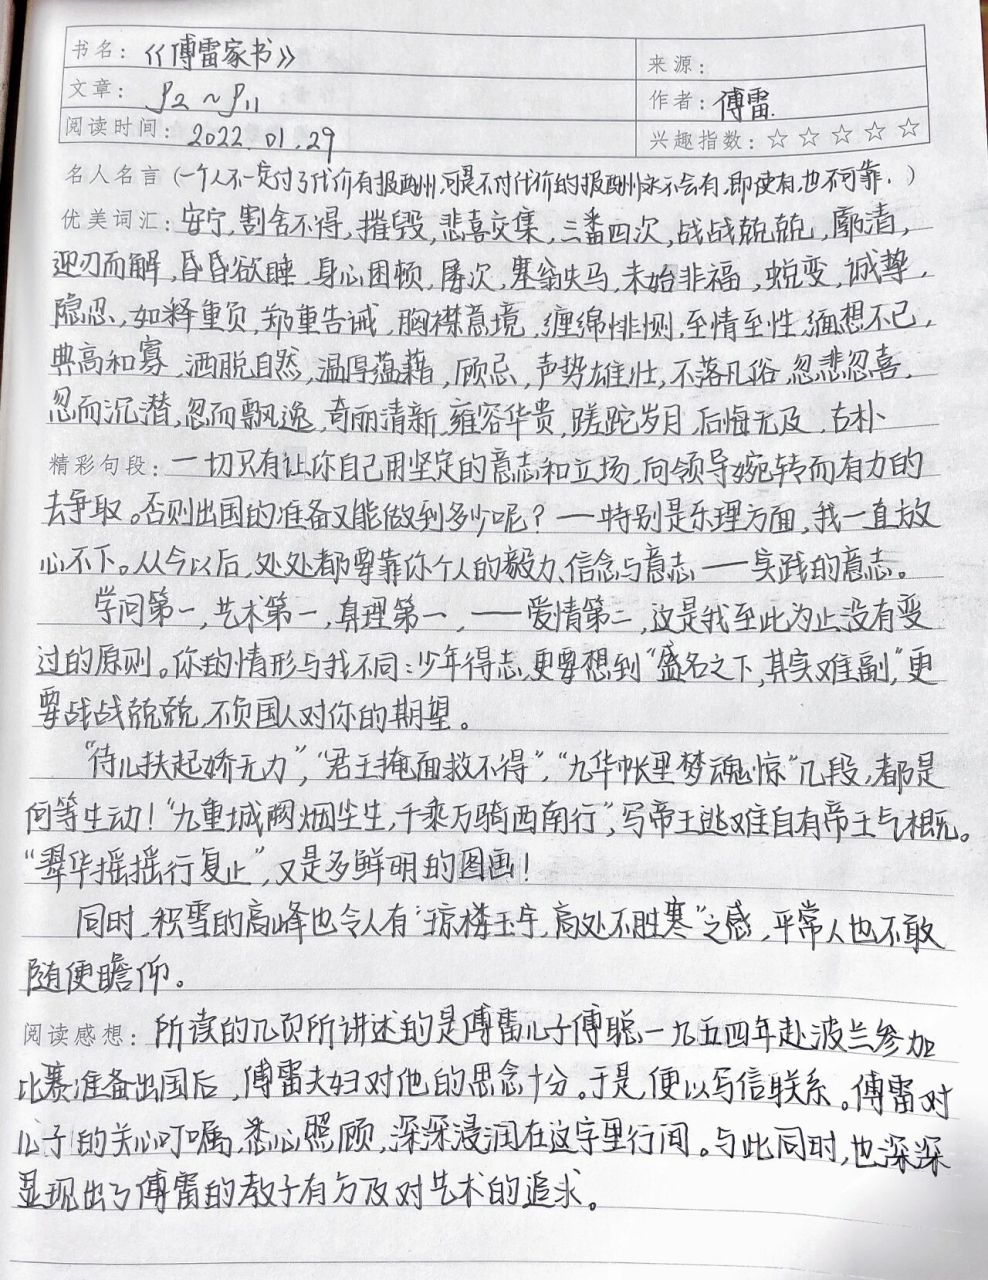 书名：《傅雷家书》
来源：
文章：P2～P11
作者：傅雷.
阅读时间：2022.01.29
兴趣指数：☆ ☆ ☆ ☆ ☆
名人名言（一个人不一定付了代价有报酬州,可是不付代价的报酬州永不会有,即使有,也不可靠.）
优美词汇：安宁,割舍不得,摧毁,悲喜交集,三番四次,战战兢兢,廓清,
迎刃而解,昏昏欲睡,身心困顿,屡次,塞翁失马,未始非福,蜕变,诚挚,
隐忍,如释重负,郑重告诫,胸襟意境,缠绵悱恻,至情至性,缅想不已,
典高和寡,洒脱自然,温厚蕴藉,顾忌,声势雄壮,不落凡俗,忽悲忽喜,
忽而沉潜,忽而飘逸,奇丽清新,雍容华贵,蹉跎岁月,后悔无及,古朴
精彩句段：一切只有让你自己用坚定的意志和立场,向领导婉转而有力的
去争取。否则出国的准备又能做到多少呢？——特别是乐理方面,我一直放
心不下。从今以后,处处都要靠你个人的毅力、信念与意志——实践的意志。
学问第一,艺术第一,真理第一,——爱情第二,这是我至此为止没有变
过的原则。你的情形与我不同:少年得志,更要想到“盛名之下,其实难副”,更
要战战兢兢,不负国人对你的期望。
“待儿扶起娇无力”,“君王掩面救不得”,“九华帐里梦魂惊”几段,都是
何等生动！“九重城阙烟尘生,千乘万骑西南行”,写帝王逃难自有帝王气概。
“翠华摇摇行复止”,又是多鲜明的图画！
同时,积雪的高峰也令人有“琼楼玉宇,高处不胜寒”之感,平常人也不敢
随便瞻仰。
阅读感想：所读的几页所讲述的是傅雷儿子傅聪一九五四年赴波兰参加
比赛准备出国后,傅雷夫妇对他的思念十分。于是,便以写信联系。傅雷对
儿子的关心叮嘱,悉心照顾,深深浸润在这字里行间。与此同时,也深深
显现出了傅雷的教子有方及对艺术的追求。